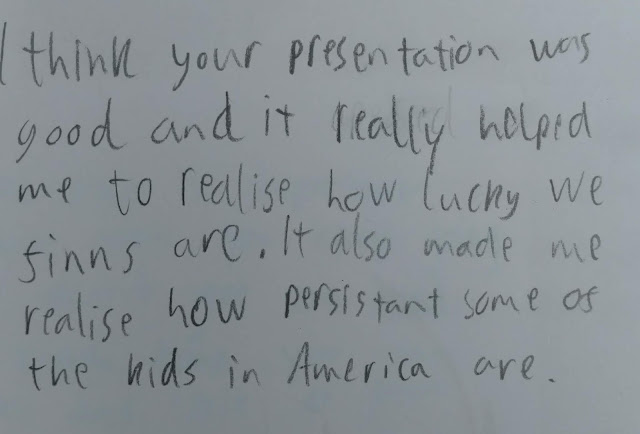 I think your presentation was
good and it really helped
me to realise how lucky we
finns are. It also made me
realise how persistant some of
the kids in America are.